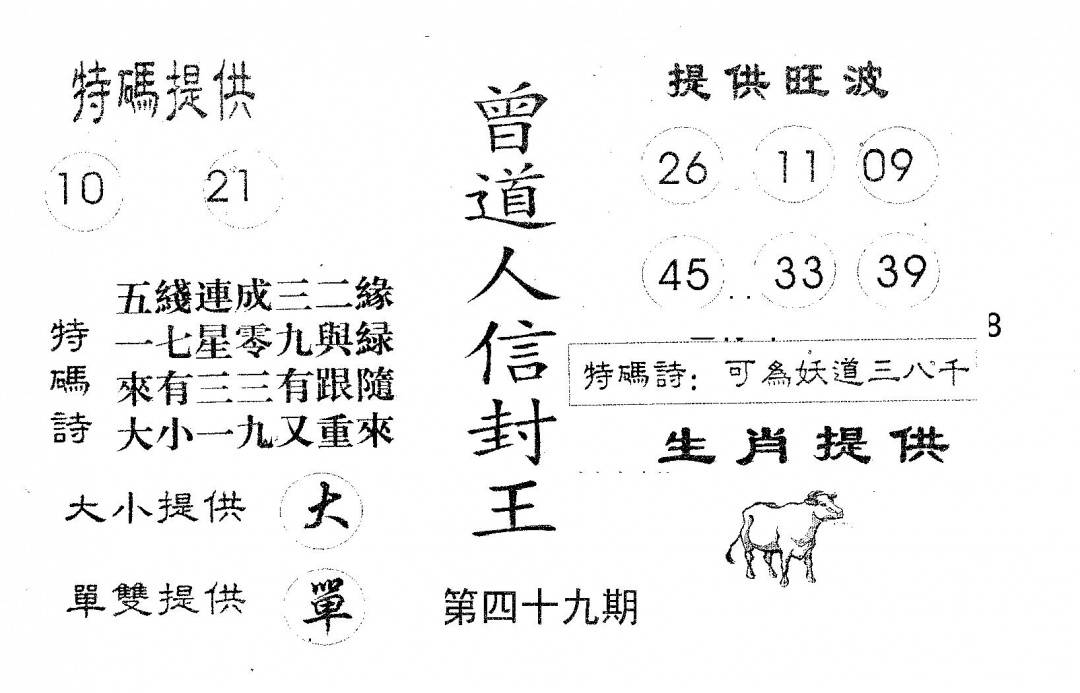 特碼提供
10 21
特碼詩
五綫連成三二緣
一七星零九與緑
來有三三有跟隨
大小一九又重來
大小提供 大
單雙提供 單
曾道人信封王
第四十九期
提供旺波
26 11 09
45 33 39
8
特碼詩：可為妖道三八千
生肖提供